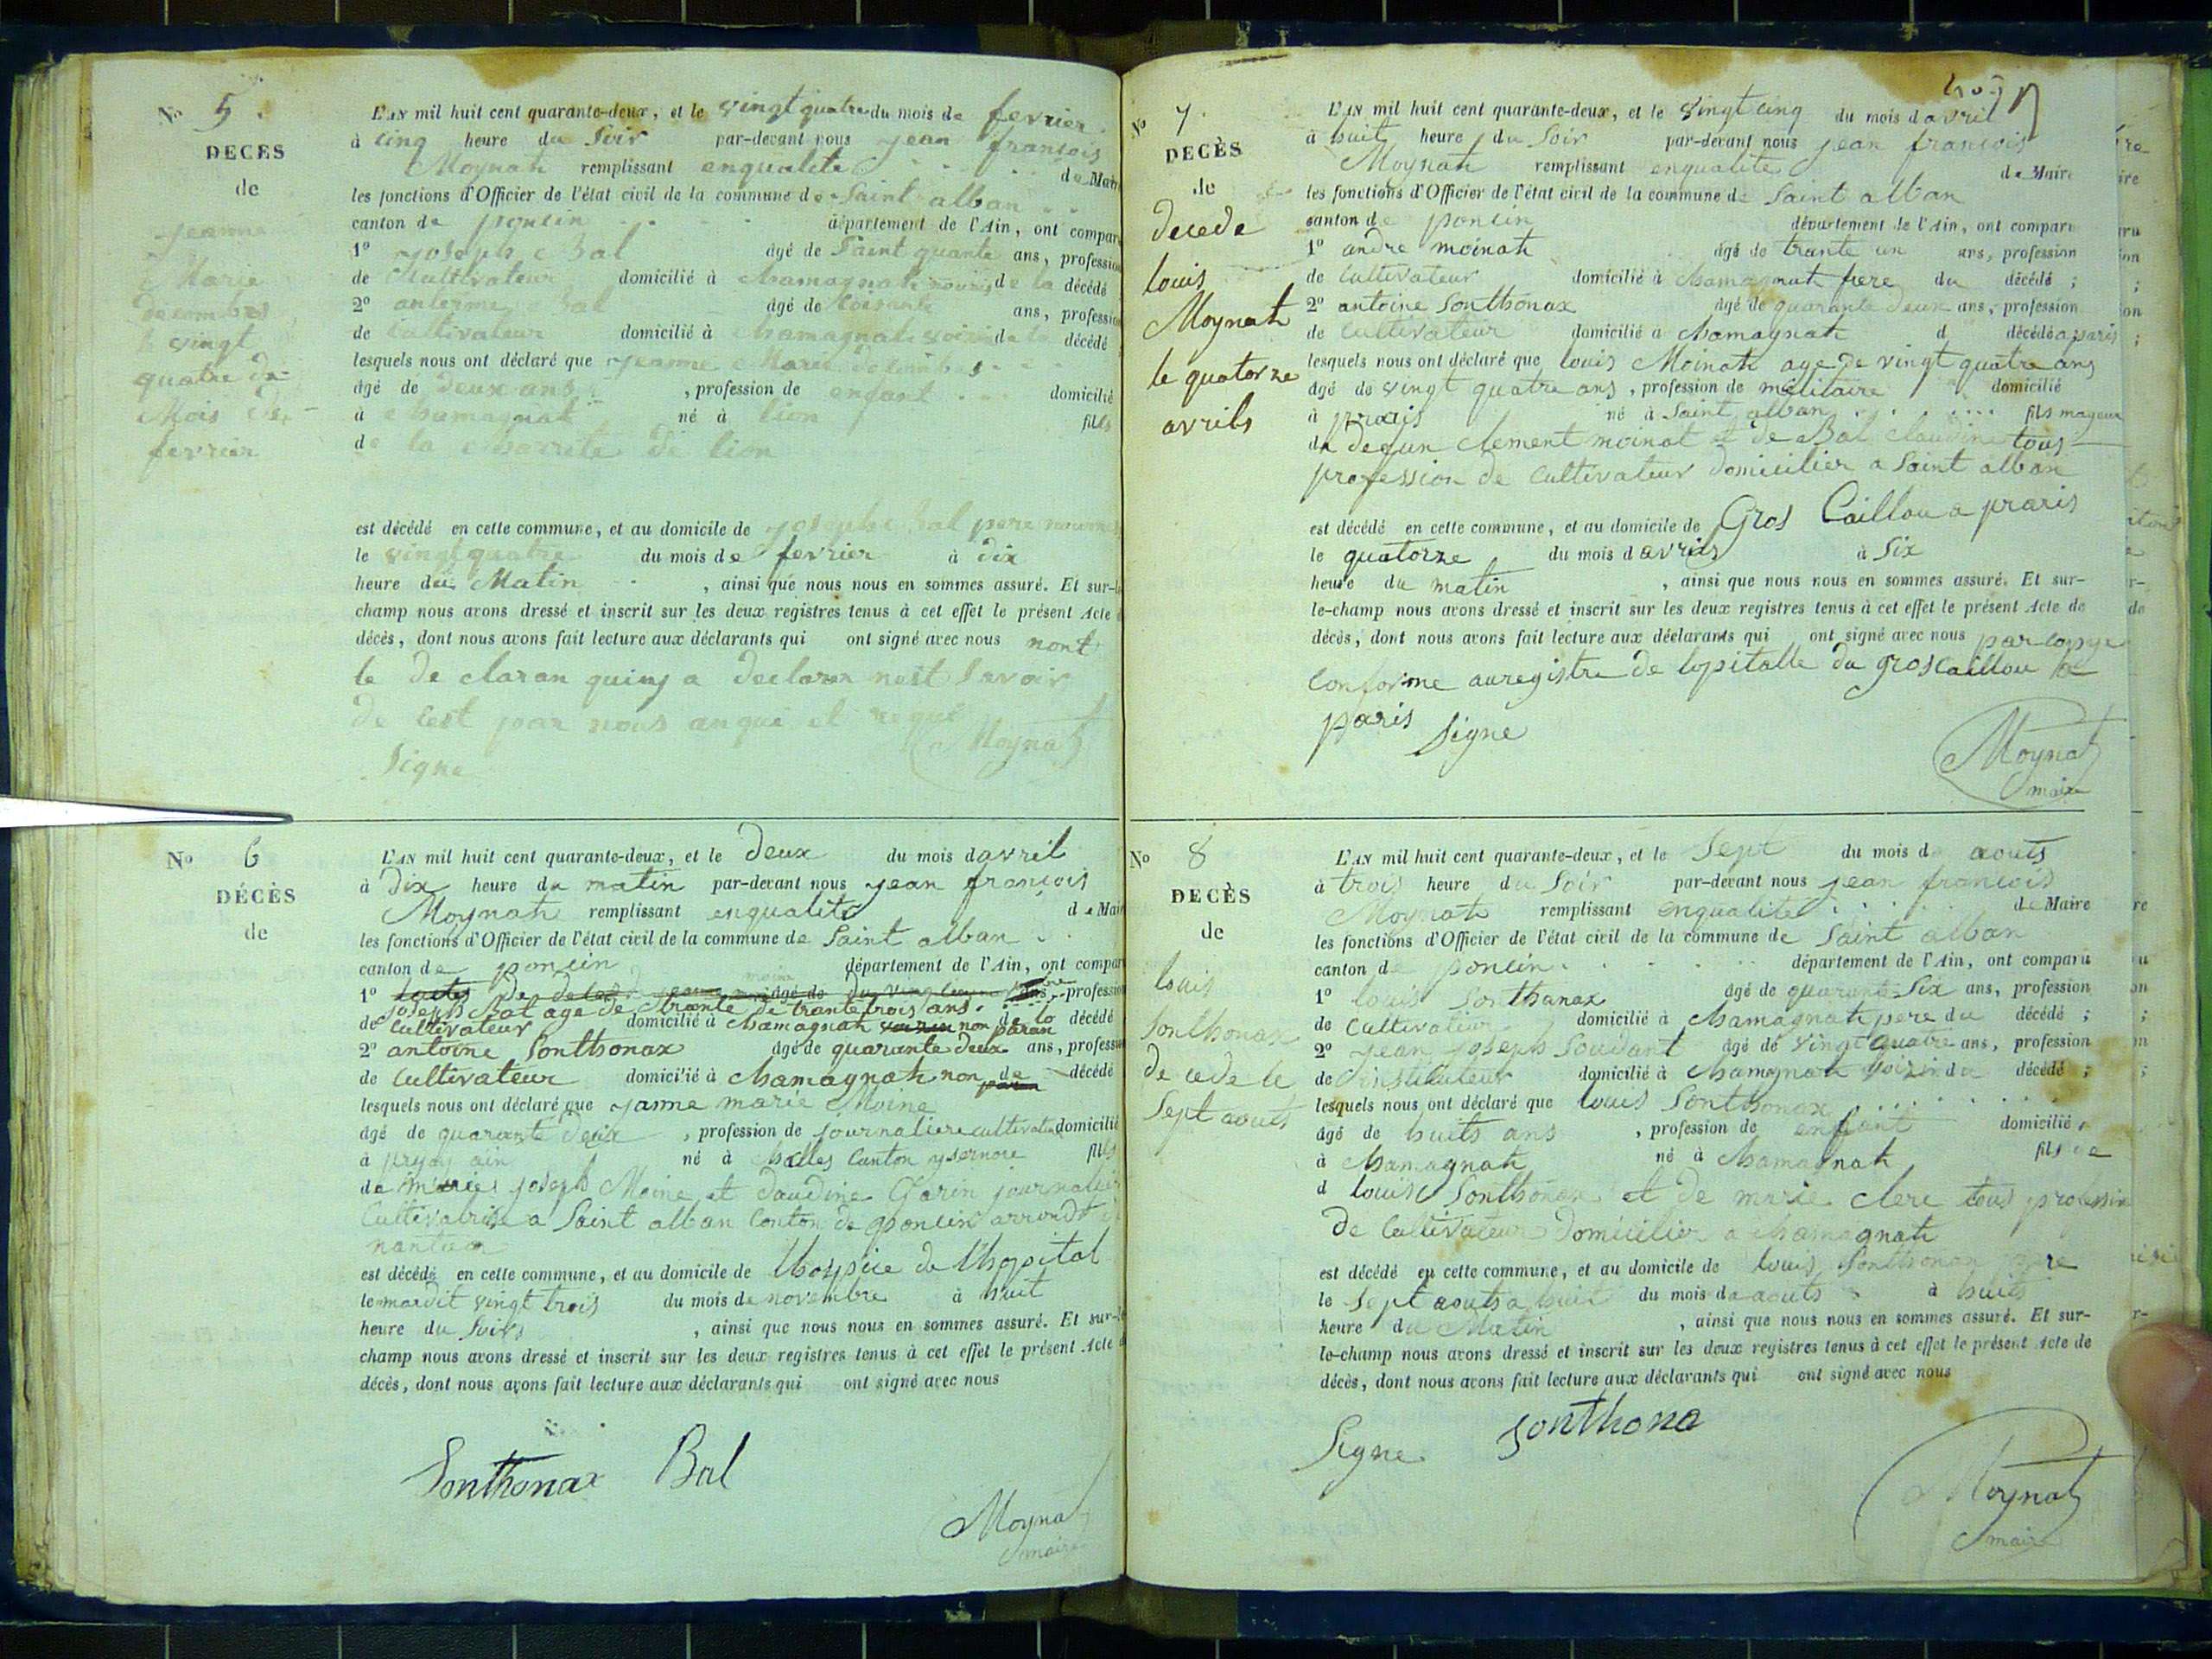 No 5.
DECES
de
jeanne
Marie
decombes
le vingt
quatre du
Mois de
fevrier
L'AN mil huit cent quarante-deux, et le vingt quatre du mois de fevrier
à cinq heure du Soir par-devant nous jean francois
Moynat remplissant enqualite de Maire
les fonctions d'Officier de l'état civil de la commune de Saint alban
canton de poncin département de l'Ain, ont compar
1º joseph Bal âgé de Saint quante ans, profession
de Cultivateur domicilié à chamagnat de la décédé
2º anterme Bal âgé de Soisante ans, profession
de Cultivateur domicilié à chamagnat voisin de la décédé
lesquels nous ont déclaré que jeanne Marie decombes
âgé de deux ans, profession de enfant domicilié
à chamagnat né à lion fills
de la charite de lion
est décédé en cette commune, et au domicile de joseph bal pere
le vingt quatre du mois de fevrier à dix
heure du Matin, ainsi que nous nous en sommes assuré. Et sur-le
champ nous avons dressé et inscrit sur les deux registres tenus à cet effet le présent Acte
décès, dont nous avons fait lecture aux déclarants qui ont signé avec nous nont
le de claran quing a declarer nest Savoir
de cest par nous anqui et requi
Signe Moynat
No 6
DÉCÈS
de
L'AN mil huit cent quarante-deux, et le deux du mois davril
à dix heure du matin par-devant nous jean francois
Moynat remplissant enqualite de Mair
les fonctions d'Officier de l'état civil de la commune de Saint alban
canton de poncin département de l'Ain, ont compar
1º âgé de profession
joseph Bal age de trante de trante trois ans
de Cultivateur domicilié à chamagnat non paran de la décédé
2º antoine Sonthonax âgé de quarante deux ans, profession
de Cultivateur domicilié à chamagnat non de décédé
paran
lesquels nous ont déclaré que janne marie Moine
âgé de quarante deux, profession de journaliere domicilié
à ain né à challes Canton ysernore fills
de joseph Moine et Claudine Garin
a Saint alban Conton de poncin
nantua
est décédé en cette commune, et au domicile de lhospice de lhopital
le mardit vingt trois du mois de novembre à huit
heure du Soirs, ainsi que nous nous en sommes assuré. Et sur-le
champ nous avons dressé et inscrit sur les deux registres tenus à cet effet le présent Acte
décès, dont nous avons fait lecture aux déclarants qui ont signé avec nous
Sonthonax Bal
Moynat
maire
No 7.
DECÈS
de
decede
louis
Moynat
le quatorze
avrils
L'AN mil huit cent quarante-deux, et le vingt cinq du mois davril
à huit heure du Soir par-devant nous jean francois
Moynat remplissant enqualite de Maire
les fonctions d'Officier de l'état civil de la commune de Saint alban
canton de poncin département de l'Ain, ont comparu
1º andre moinat âgé de trante un ans, profession
de Cultivateur domicilié à chamagnat frere du décédé ;
2º antoine Sonthonax âgé de quarante deux ans, profession
de Cultivateur domicilié à chamagnat d décédé a paris ;
lesquels nous ont déclaré que louis Moinat age de vingt quatre ans
âgé de vingt quatre ans, profession de melitaire domicilié
à prais né à Saint alban fils mageur
du defun clement moinat et de Bal claudine tous
profession de cultivateur domicilier a Saint alban
est décédé en cette commune, et au domicile de Gros Caillou a praris
le quatorze du mois d avrils à Six
heure du matin, ainsi que nous nous en sommes assuré. Et sur-
le-champ nous avons dressé et inscrit sur les deux registres tenus à cet effet le présent Acte de
décès, dont nous avons fait lecture aux déclarants qui ont signé avec nous par copye
Conforme auregistre de lopitalle du groscaillou a
paris Signe
Moynat
maire
No 8
DECÈS
de
louis
Sonthonax
de cede le
Sept aouts
L'AN mil huit cent quarante-deux, et le Sept du mois d aouts
à trois heure du Soir par-devant nous jean francois
Moynat remplissant enqualite de Maire
les fonctions d'Officier de l'état civil de la commune de Saint alban
canton de poncin département de l'Ain, ont comparu
1º louis Sonthanax âgé de quarante Six ans, profession
de Cultivateur domicilié à chamagnat pere du décédé ;
2º jean joseph Soudant âgé de vingt quatre ans, profession
de instituteur domicilié à chamagnat voizin du décédé ;
lesquels nous ont déclaré que louis Sonthonax
âgé de huits ans, profession de enfant domicilié
à chamagnat né à chamagnat fils de
d louis Sonthonax et de marie clerc tous profession
de Cultivateur Domicilier a chamagnat
est décédé en cette commune, et au domicile de louis Sonthonax pere
le Sept aouts a huit du mois d aouts à huits
heure du Matin, ainsi que nous nous en sommes assuré. Et sur-
le-champ nous avons dressé et inscrit sur les deux registres tenus à cet effet le présent Acte de
décès, dont nous avons fait lecture aux déclarants qui ont signé avec nous
Signe Sonthona
Moynat
maire